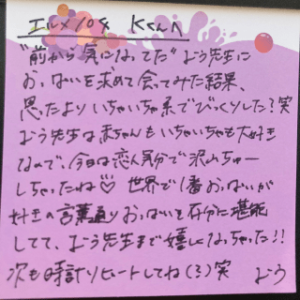 エルメパイ Kくんへ
"前から気になってた"おう先生に
おっぱいを求めて会ってみた結果、
思たよりいちゃいちゃ系でびっくりした?笑
おう先生は赤ちゃんもいちゃいちゃも大好き
なので、今日は恋人気分で沢山ちゅー
しちゃったね♡ 世界で1番おっぱいが
好きの言葉通りおっぱいを存分に堪能
してて、おう先生まで嬉しくなっちゃった!!
次も時計リピートしてね(ミ)笑 おう